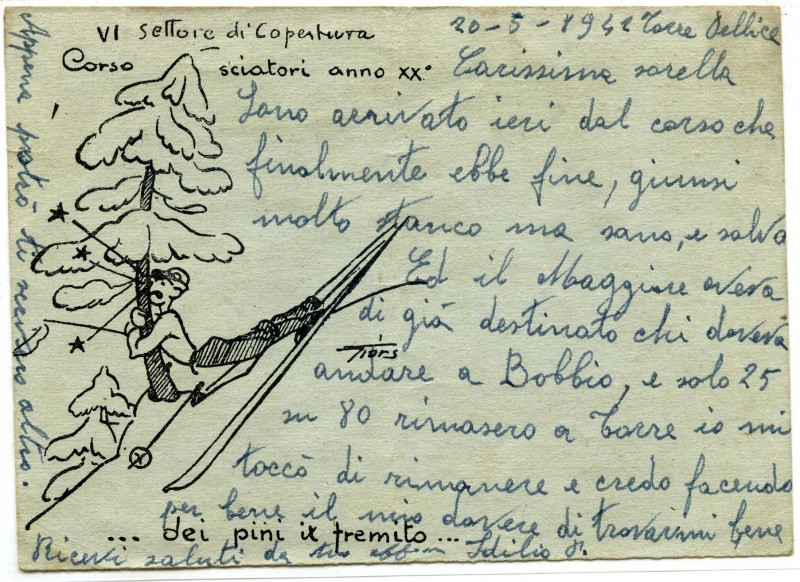 VI settore di Copertura
Corso sciatori anno XX°
20-5-1942 Torre Pellice
Carissima sorella
Sono arrivato ieri dal corso che
finalmente ebbe fine, giunsi
molto stanco ma sano, e salvo
Ed il Maggiore aveva
di già destinato chi doveva
andare a Bobbio, e solo 25
su 80 rimasero a Torre io mi
toccò di rimanere e credo facendo
per bene il mio dovere di trovarmi bene
Tiors
... dei pini il tremito ...
Ricevi saluti da tuo Idilio
Appena potrò ti scrivero altro.